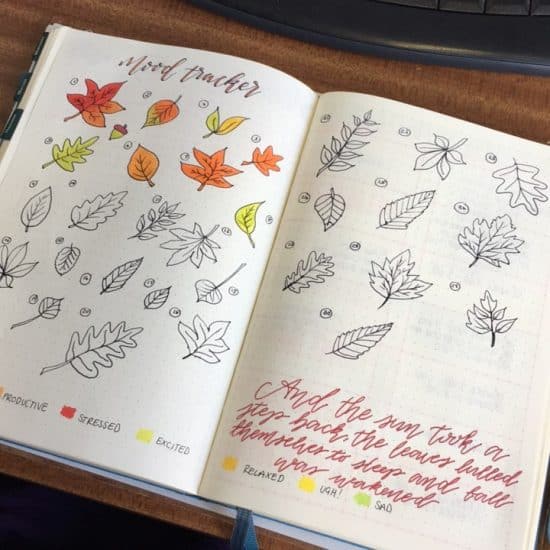 Mood tracker
PRODUCTIVE
STRESSED
EXCITED
And the sun took a
step back, the leaves lulled
themselves to sleep and fall
was wakened
RELAXED
UGH!
SAD